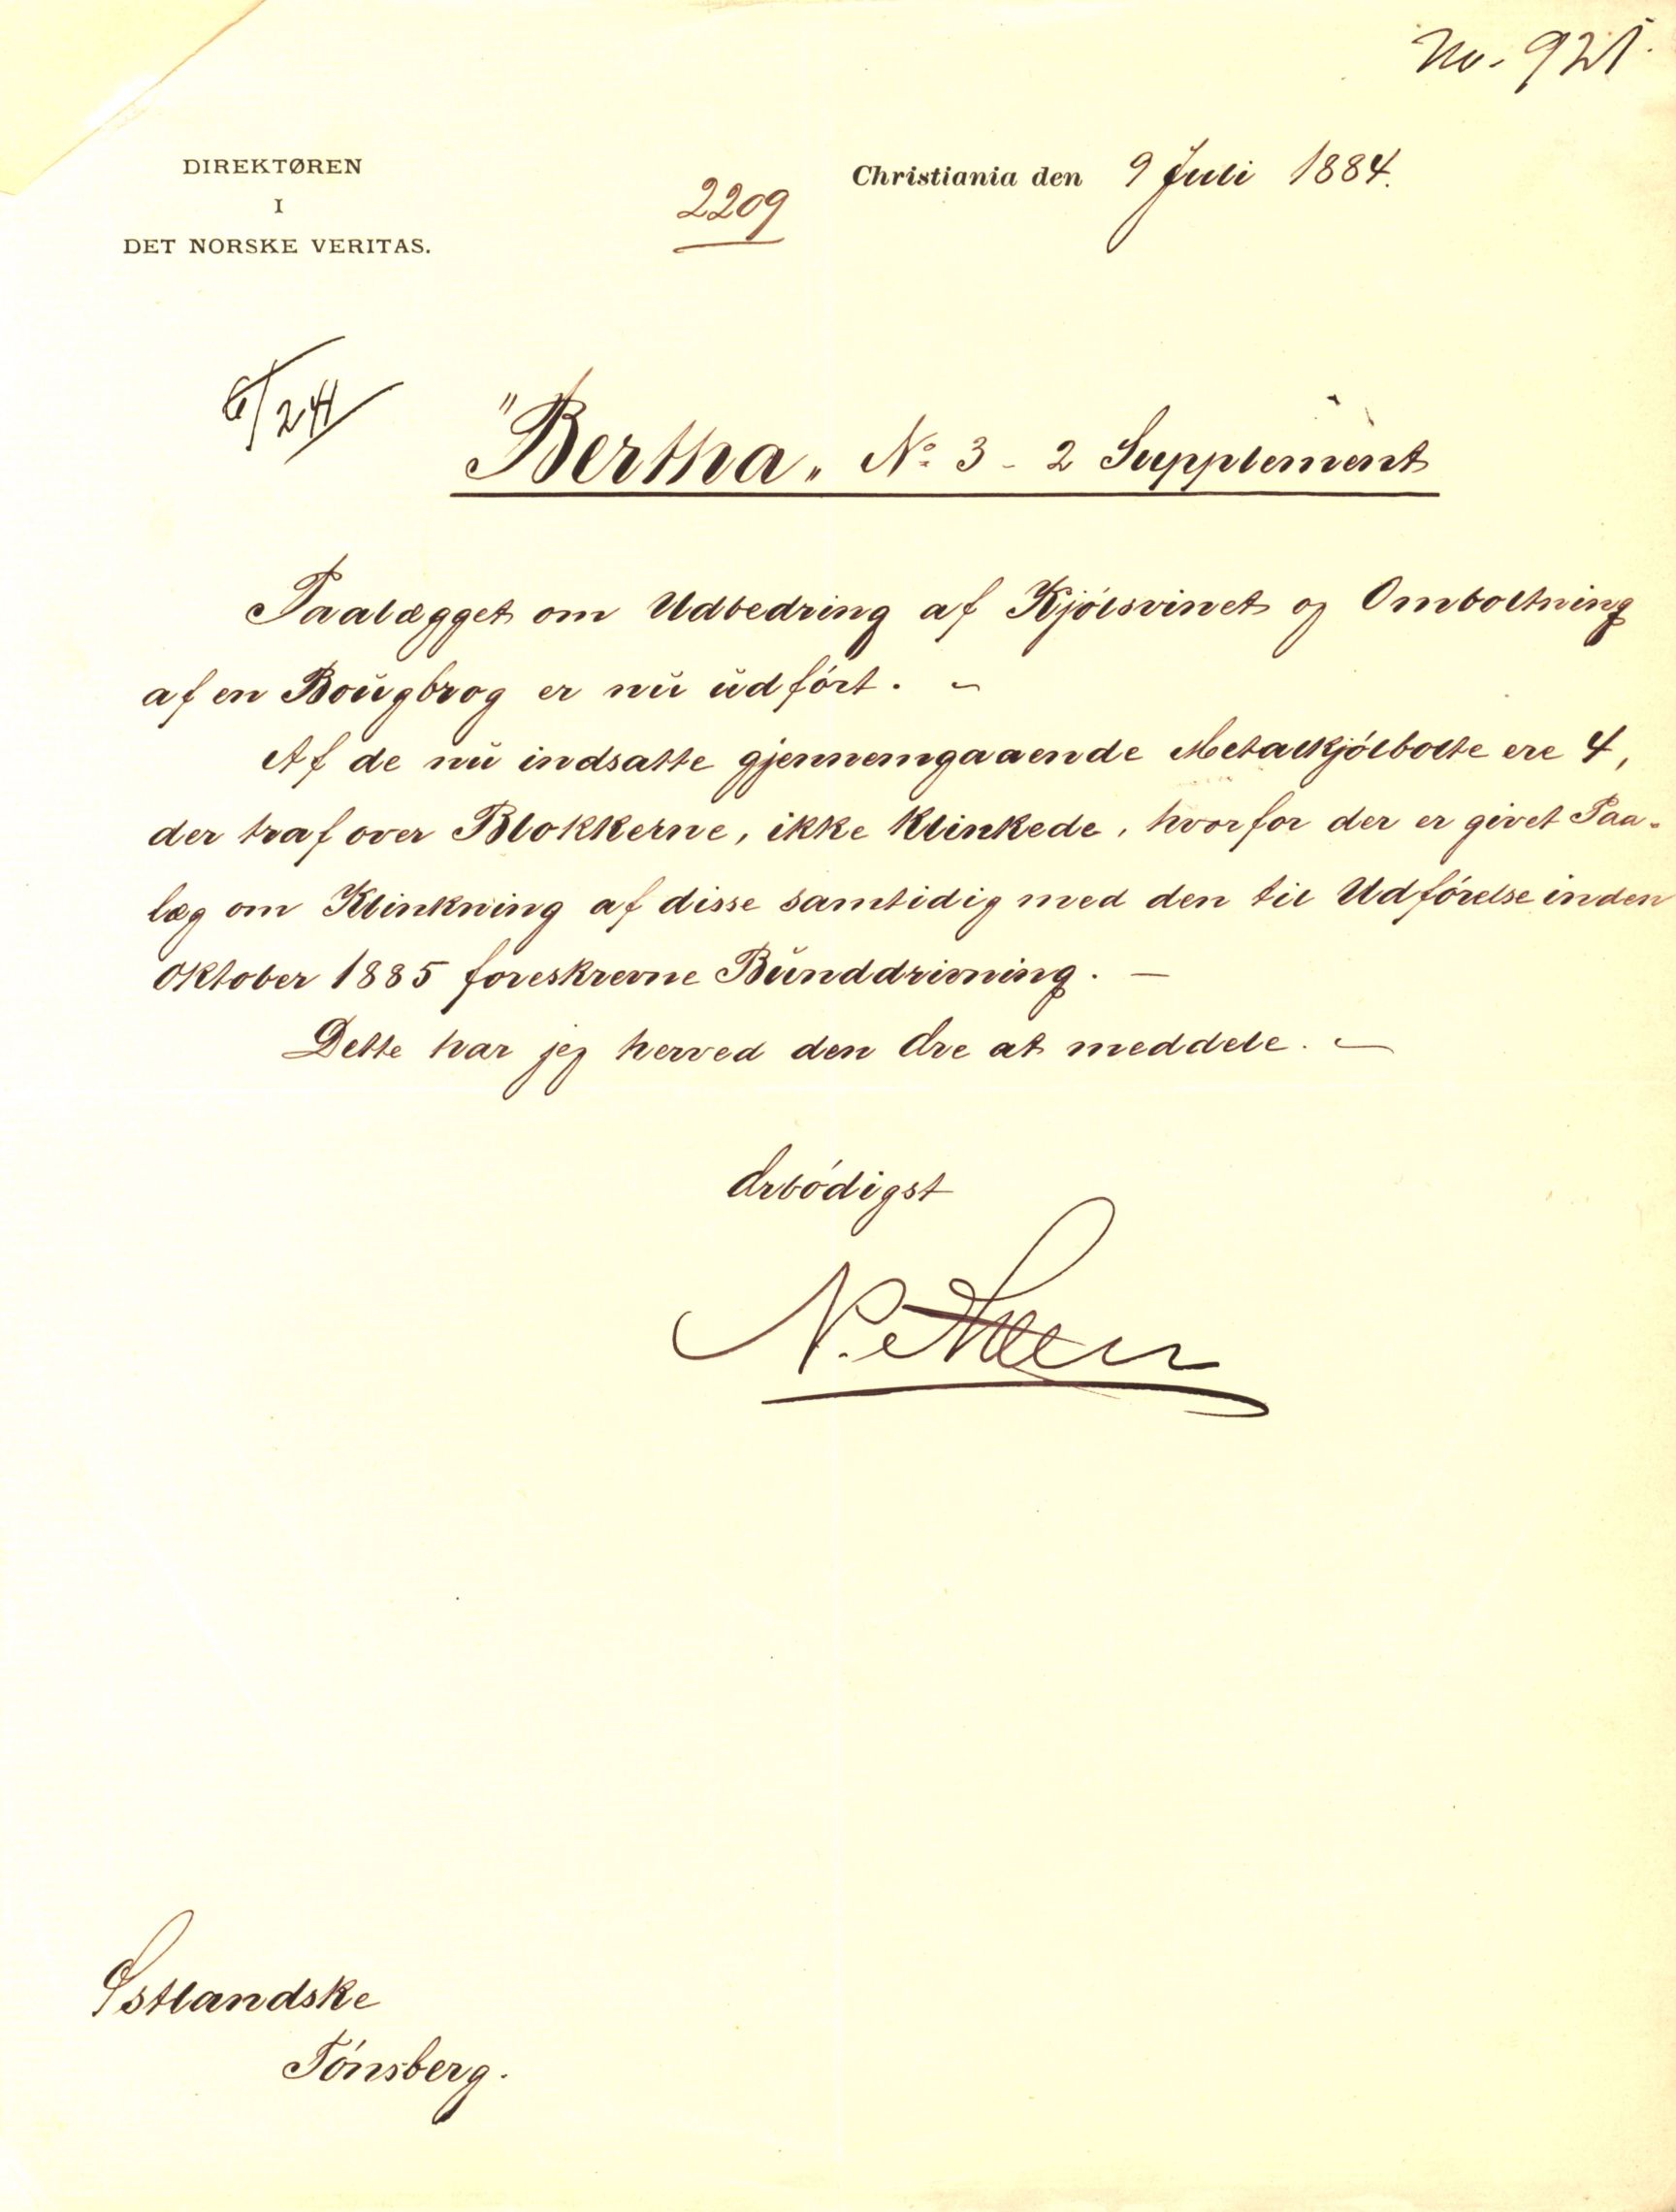 No. 921.
DIREKTØREN
I
DET NORSKE VERITAS.
2209
Christiania den 9 Juli 1884.
6/24
"Bertha„ No 3 - 2 Supplement
Paalægget om Udbedring af Kjölsvinet og Omboltning
af en Bougbrog er nu udfört. -
Af de nu indsatte gjennemgaaende Metalkjölbolte ere 4,
der traf over Blokkerne, ikke klinkede, hvorfor der er givet Paa-
læg om Klinkning af disse samtidig med den til Udförelse inden
Oktober 1885 foreskrevne Bunddrivning. -
Dette har jeg herved den Ære at meddele. -
Ærbödigst
N.
Østlandske
Tönsberg.